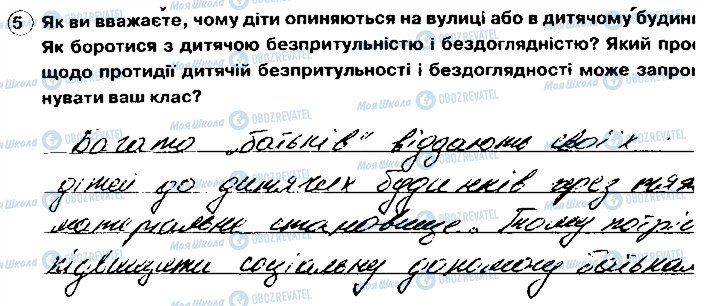 5 Як ви вважаєте, чому діти опиняються на вулиці або в дитячому будин
Як боротися з дитячою безпритульністю і бездоглядністю? Який прое
щодо протидії дитячій безпритульності і бездоглядності може запроп
нувати ваш клас?
Багато „батьків" віддають своїх
дітей до дитячих будинків через тяж
матеріальне становище. Тому потріб
підвищити соціальну допомогу батькам